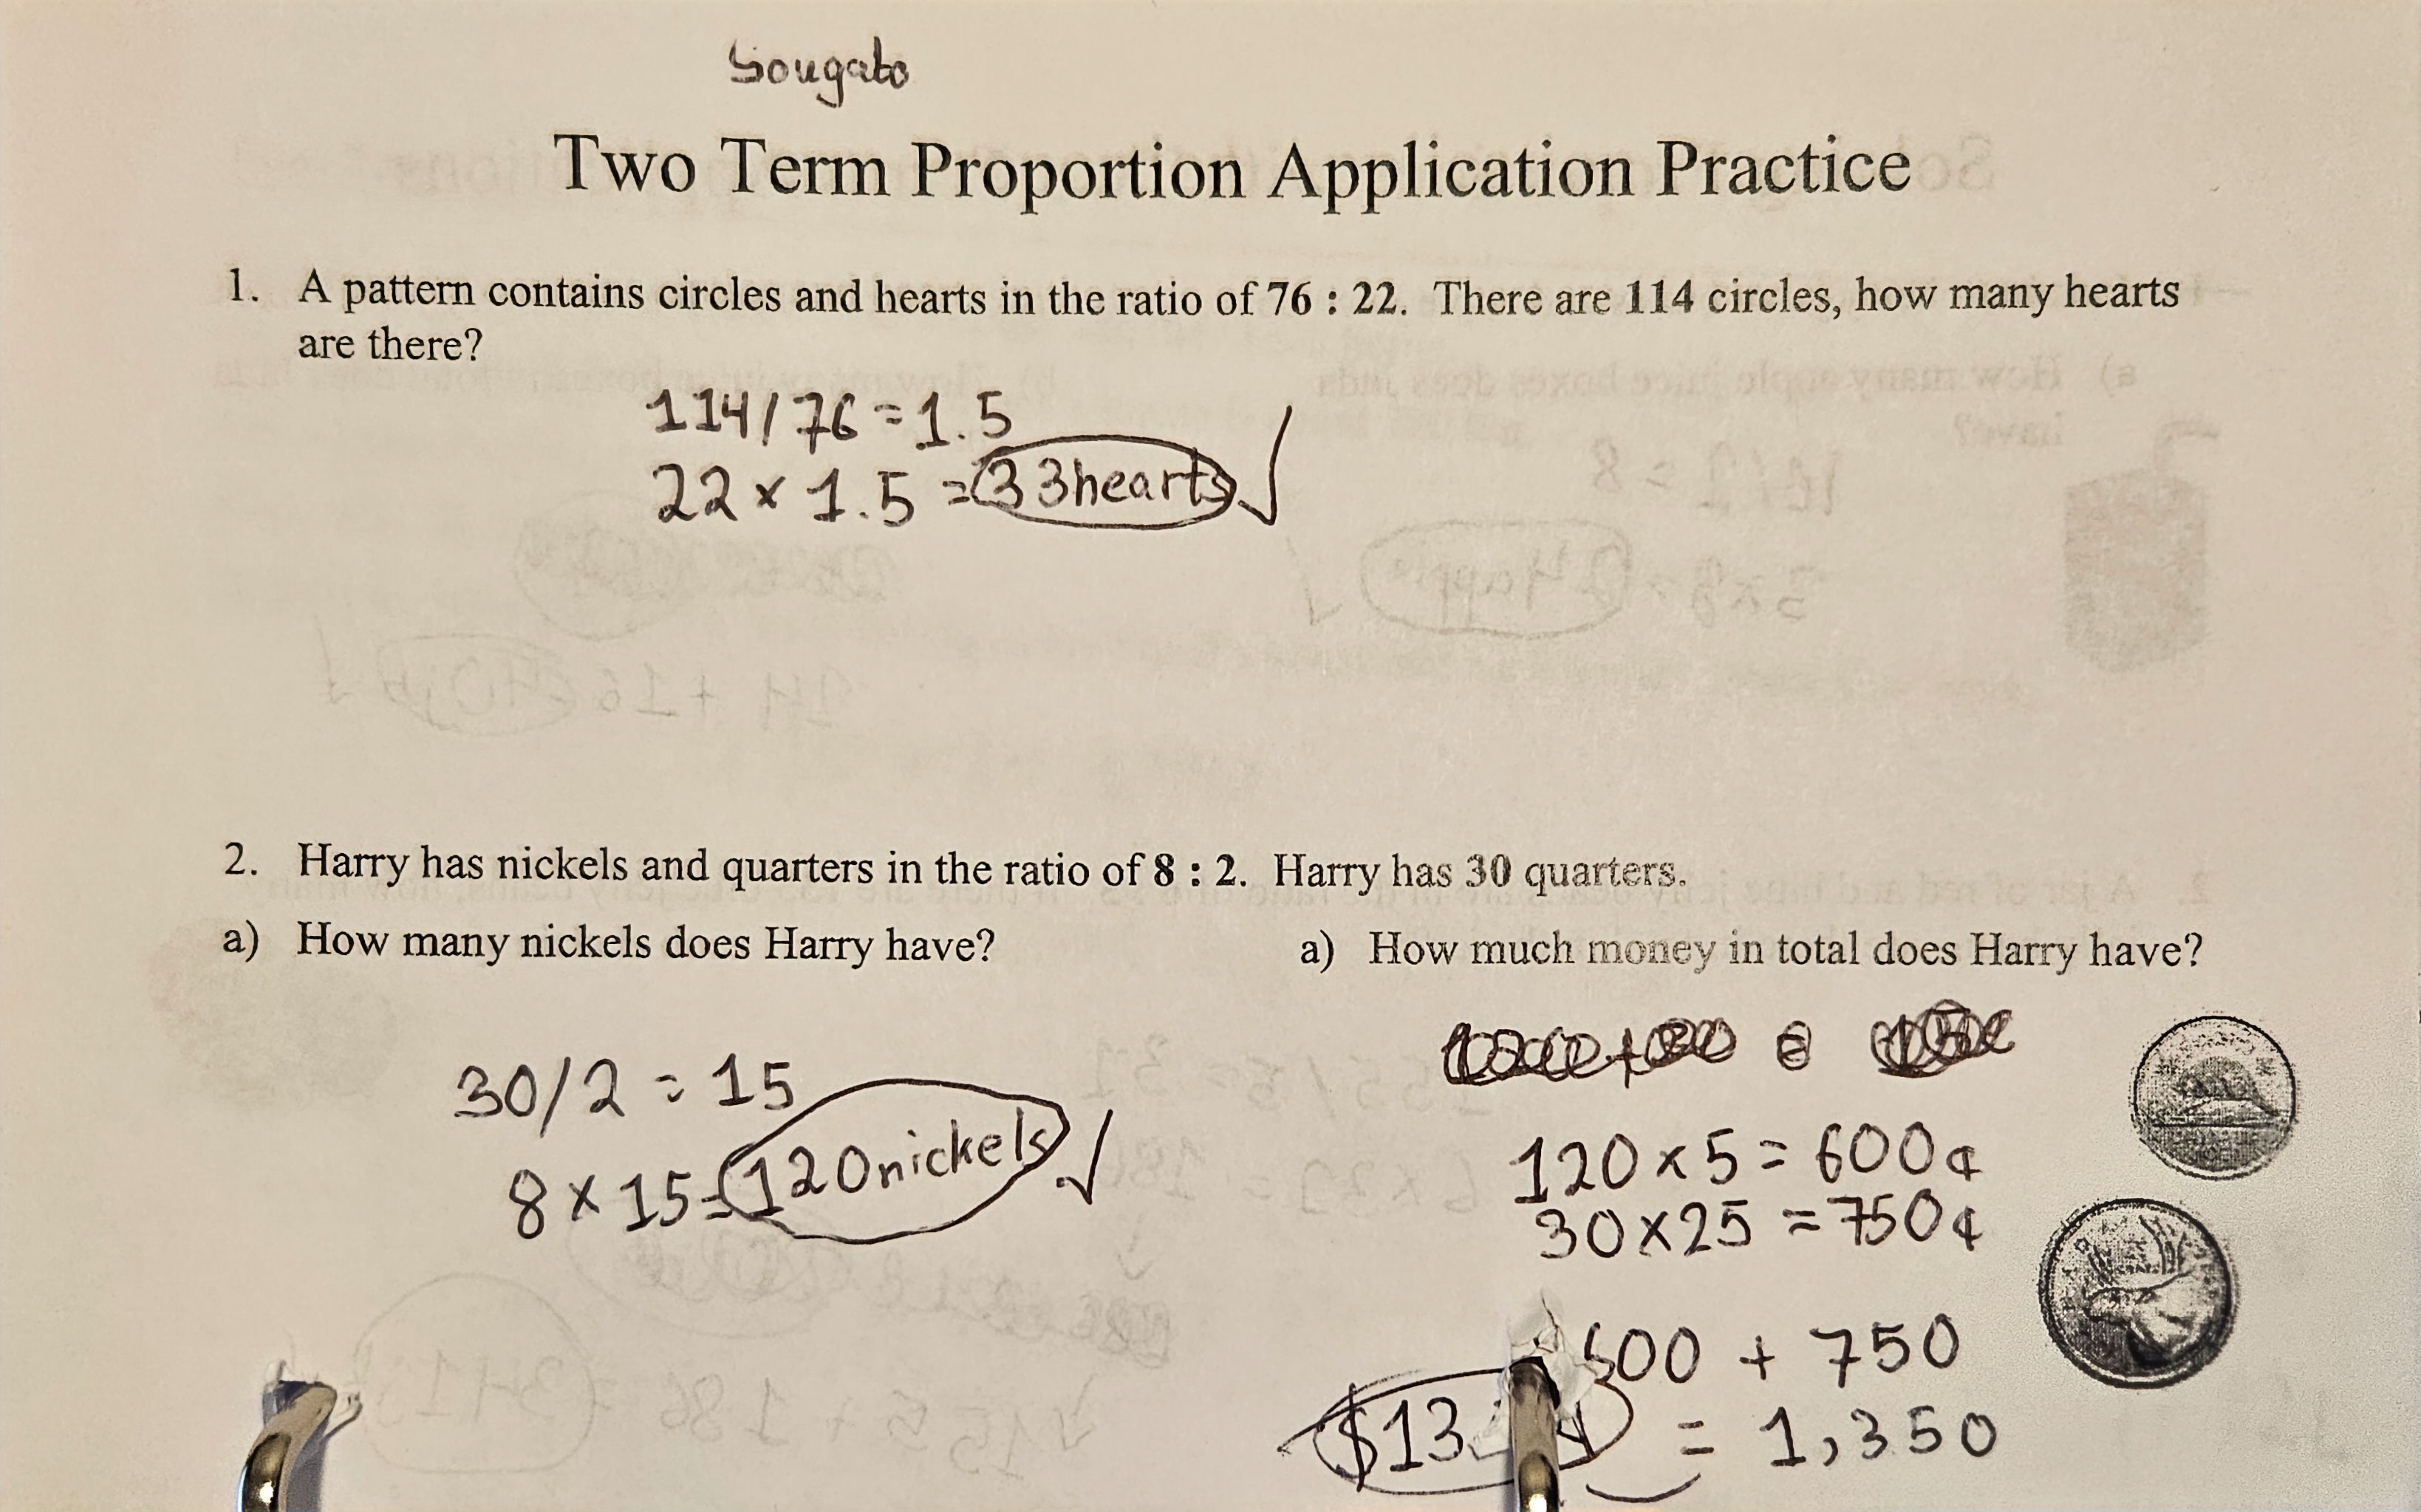 Sougato
Two Term Proportion Application Practice
1. A pattern contains circles and hearts in the ratio of 76 : 22. There are 114 circles, how many hearts
are there?
114/76=1.5
22 x 1.5 = 33hearts
2. Harry has nickels and quarters in the ratio of 8 : 2. Harry has 30 quarters.
a) How many nickels does Harry have?
30/2 = 15
8 x 15 = 120nickels
a) How much money in total does Harry have?
120 x 5 = 600¢
30 x 25 = 750¢
600 + 750
= 1,350
$13